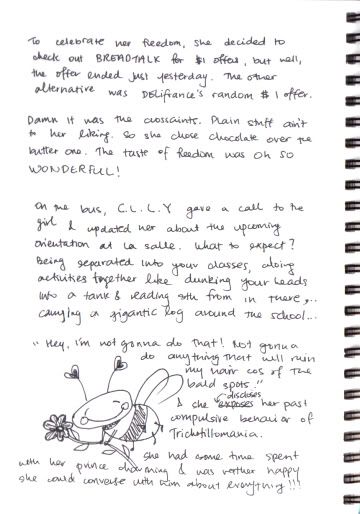 To celebrate her freedom, she decided to
check out BREADTALK for $1 offers, but well,
the offer ended just yesterday. The other
alternative was Délifrance's random $1 offer.
Damn it was the croissaints. Plain stuff ain't
to her liking. So she chose chocolate over the
butter one. The taste of freedom was oh so
WONDERFUL!
On the bus, C.L.L.Y gave a call to the
girl & updated her about the upcoming
orientation at La salle. What to expect?
Being separated into your classes, doing
activities together like dunking your heads
into a tank & reading sth from in there,..
carrying a gigantic log around the school...
"Hey, I'm not gonna do that! Not gonna
do anything that will ruin
my hair cos of the
bald spots."
discloses
& she exposes her past
compulsive behavior of
Trichotillomania.
she had some time spent
with her prince charming & was rather happy
she could converse with him about everything!!!